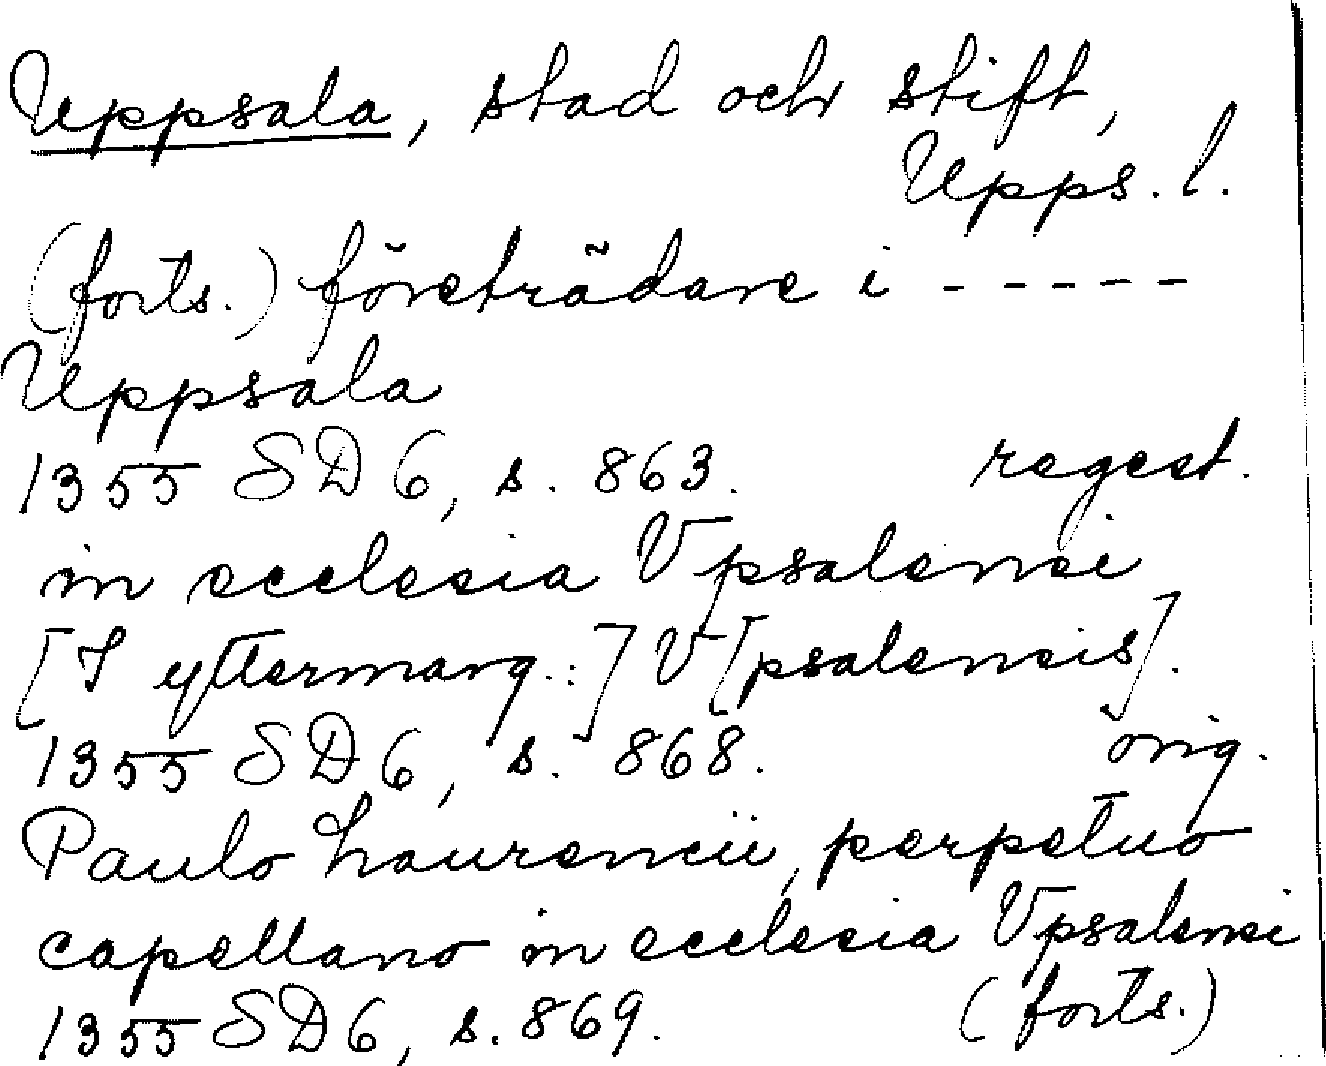 Uppsala, stad och stift,
Upps. l.
(forts.) företrädare i -----
Uppsala
1355 SD 6, s. 863. regest.
in ecclesia Vpsalensi
[I yttermarg.:] V[psalensis].
1355 SD 6, s. 868. orig.
Paulo Laurencii, perpetuo
capellano in ecclesia Vpsalensi
1355 SD 6, s. 869. (forts.)